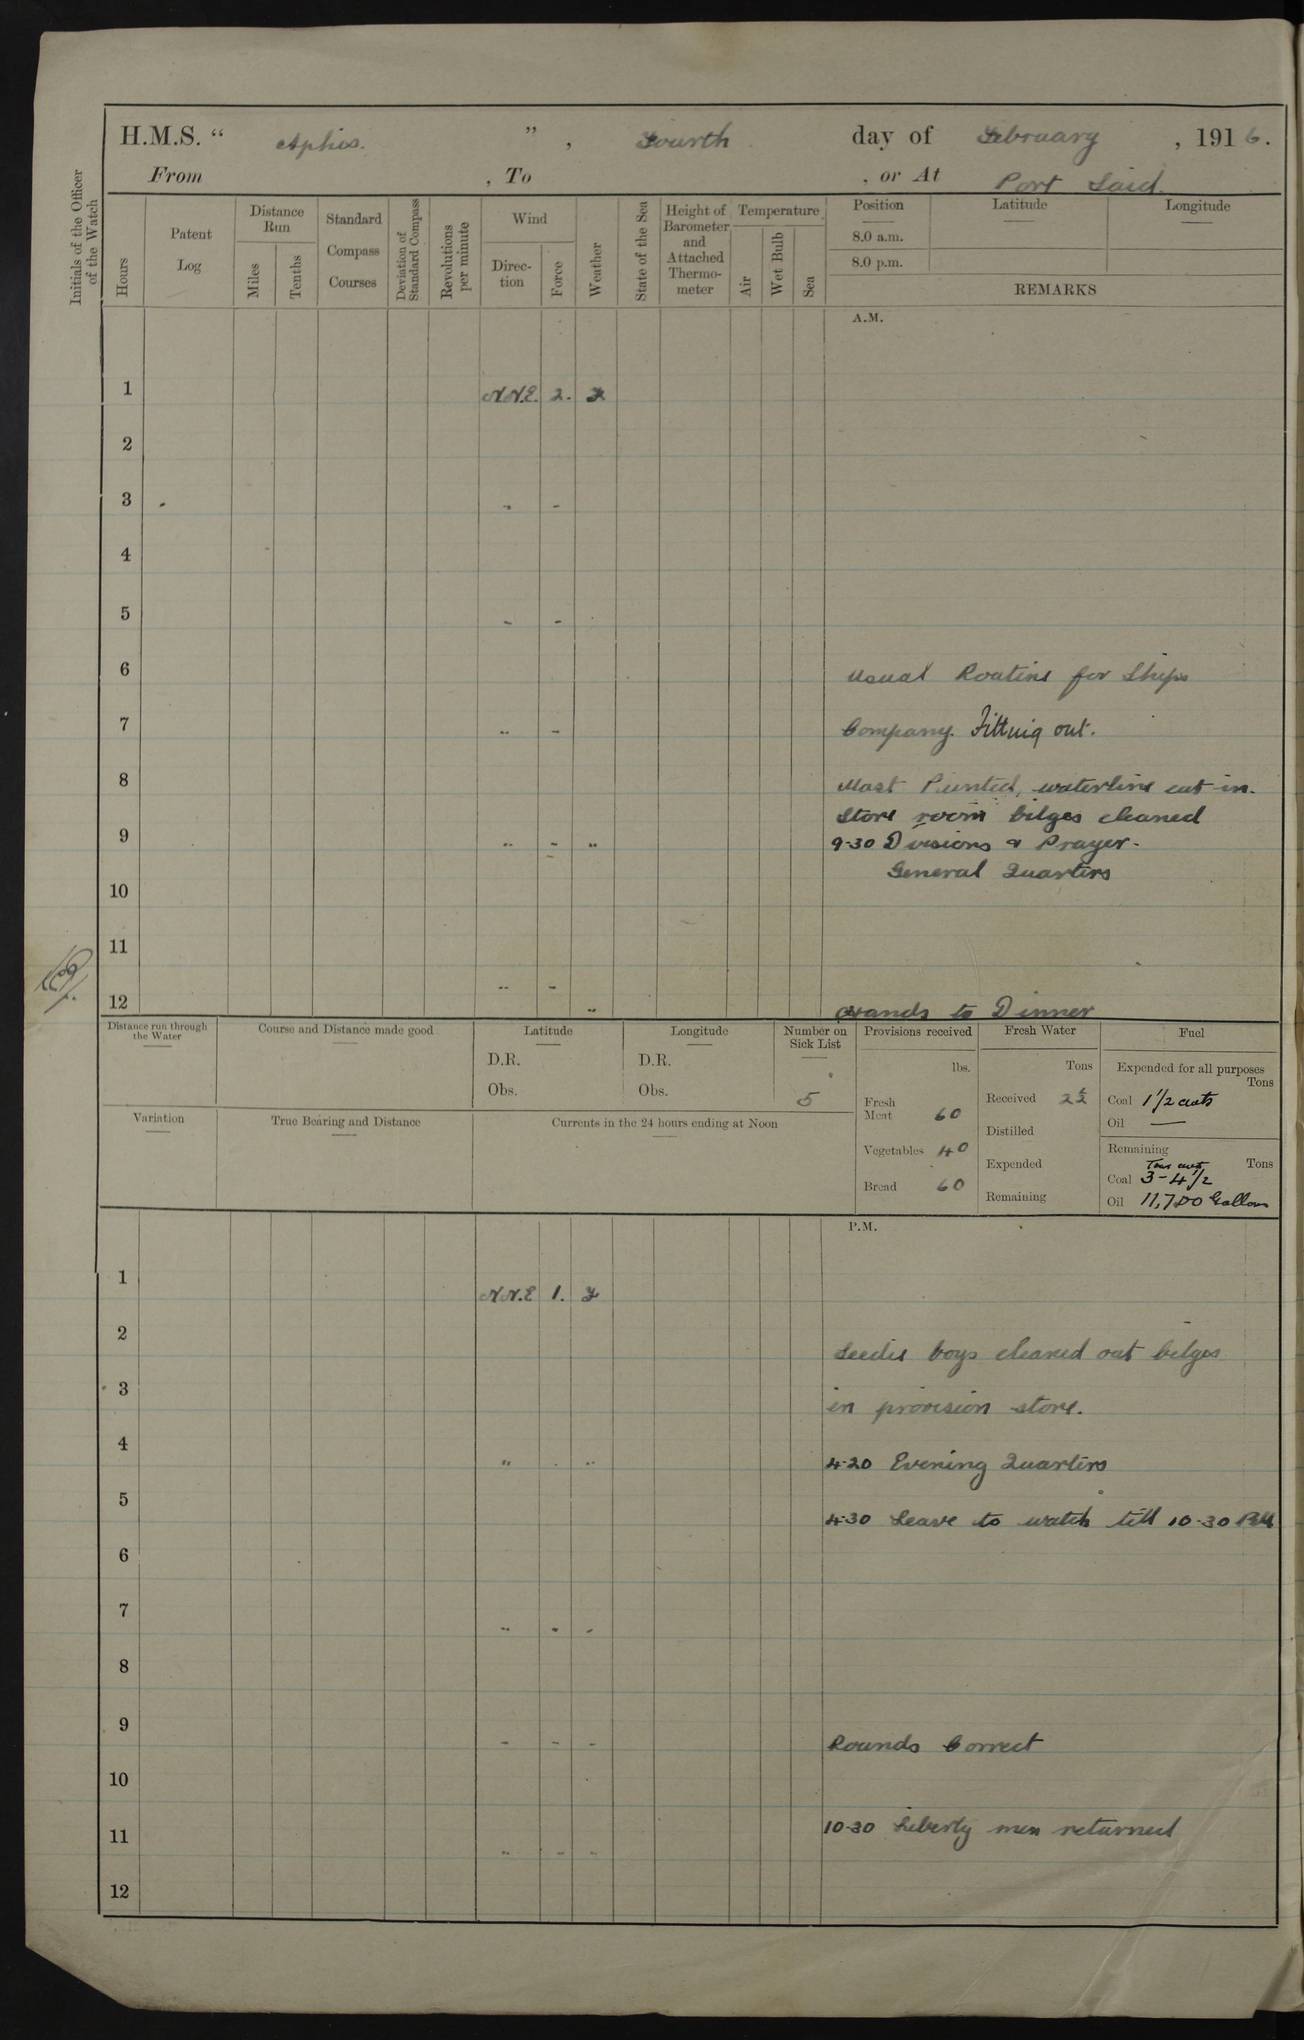 H.M.S. “ Aphis. ” , Fourth day of February , 1916.
From , To , or At Port Said.
Initials of the Officer of the Watch
Hours
Patent Log
Distance Run
Miles
Tenths
Standard Compass Courses
Deviation of Standard Compass
Revolutions per minute
Wind
Direction
Force
Weather
State of the Sea
Height of Barometer and Attached Thermometer
Temperature
Air
Wet Bulb
Sea
Position Latitude Longitude
8.0 a.m.
8.0 p.m.
REMARKS
A.M.
1 N.N.E. 2.
2
3 " "
4
5 " "
6 Usual Routine for Ships
7 " " Company. Fitting out.
8 Mast Painted, waterline cut in.
Store room bilges cleaned
9 " " " 9-30 Divisions & Prayer-
General Quarters
10
11
" "
12 " Hands to Dinner
Distance run through the Water
Course and Distance made good
Latitude
D.R.
Obs.
Longitude
D.R.
Obs.
Number on Sick List
5
Variation
True Bearing and Distance
Currents in the 24 hours ending at Noon
Provisions received
lbs.
Fresh Meat 60
Vegetables 40
Bread 60
Fresh Water
Tons
Received
Distilled
Expended
Remaining
Fuel
Expended for all purposes
Tons
Coal 1 1/2 cwts
Oil —
Remaining
Tons cwts Tons
Coal 3 - 4 1/2
Oil 11,700 Gallons
P.M.
1 N.N.E 1.
2 Seedie boys cleaned out bilges
3 in provision store.
4 " " 4-20 Evening Quarters
5 4-30 Leave to watch till 10-30 PM
6
7 " " "
8
9 " " " Rounds Correct
10
11 10-30 Liberty men returned
" " "
12